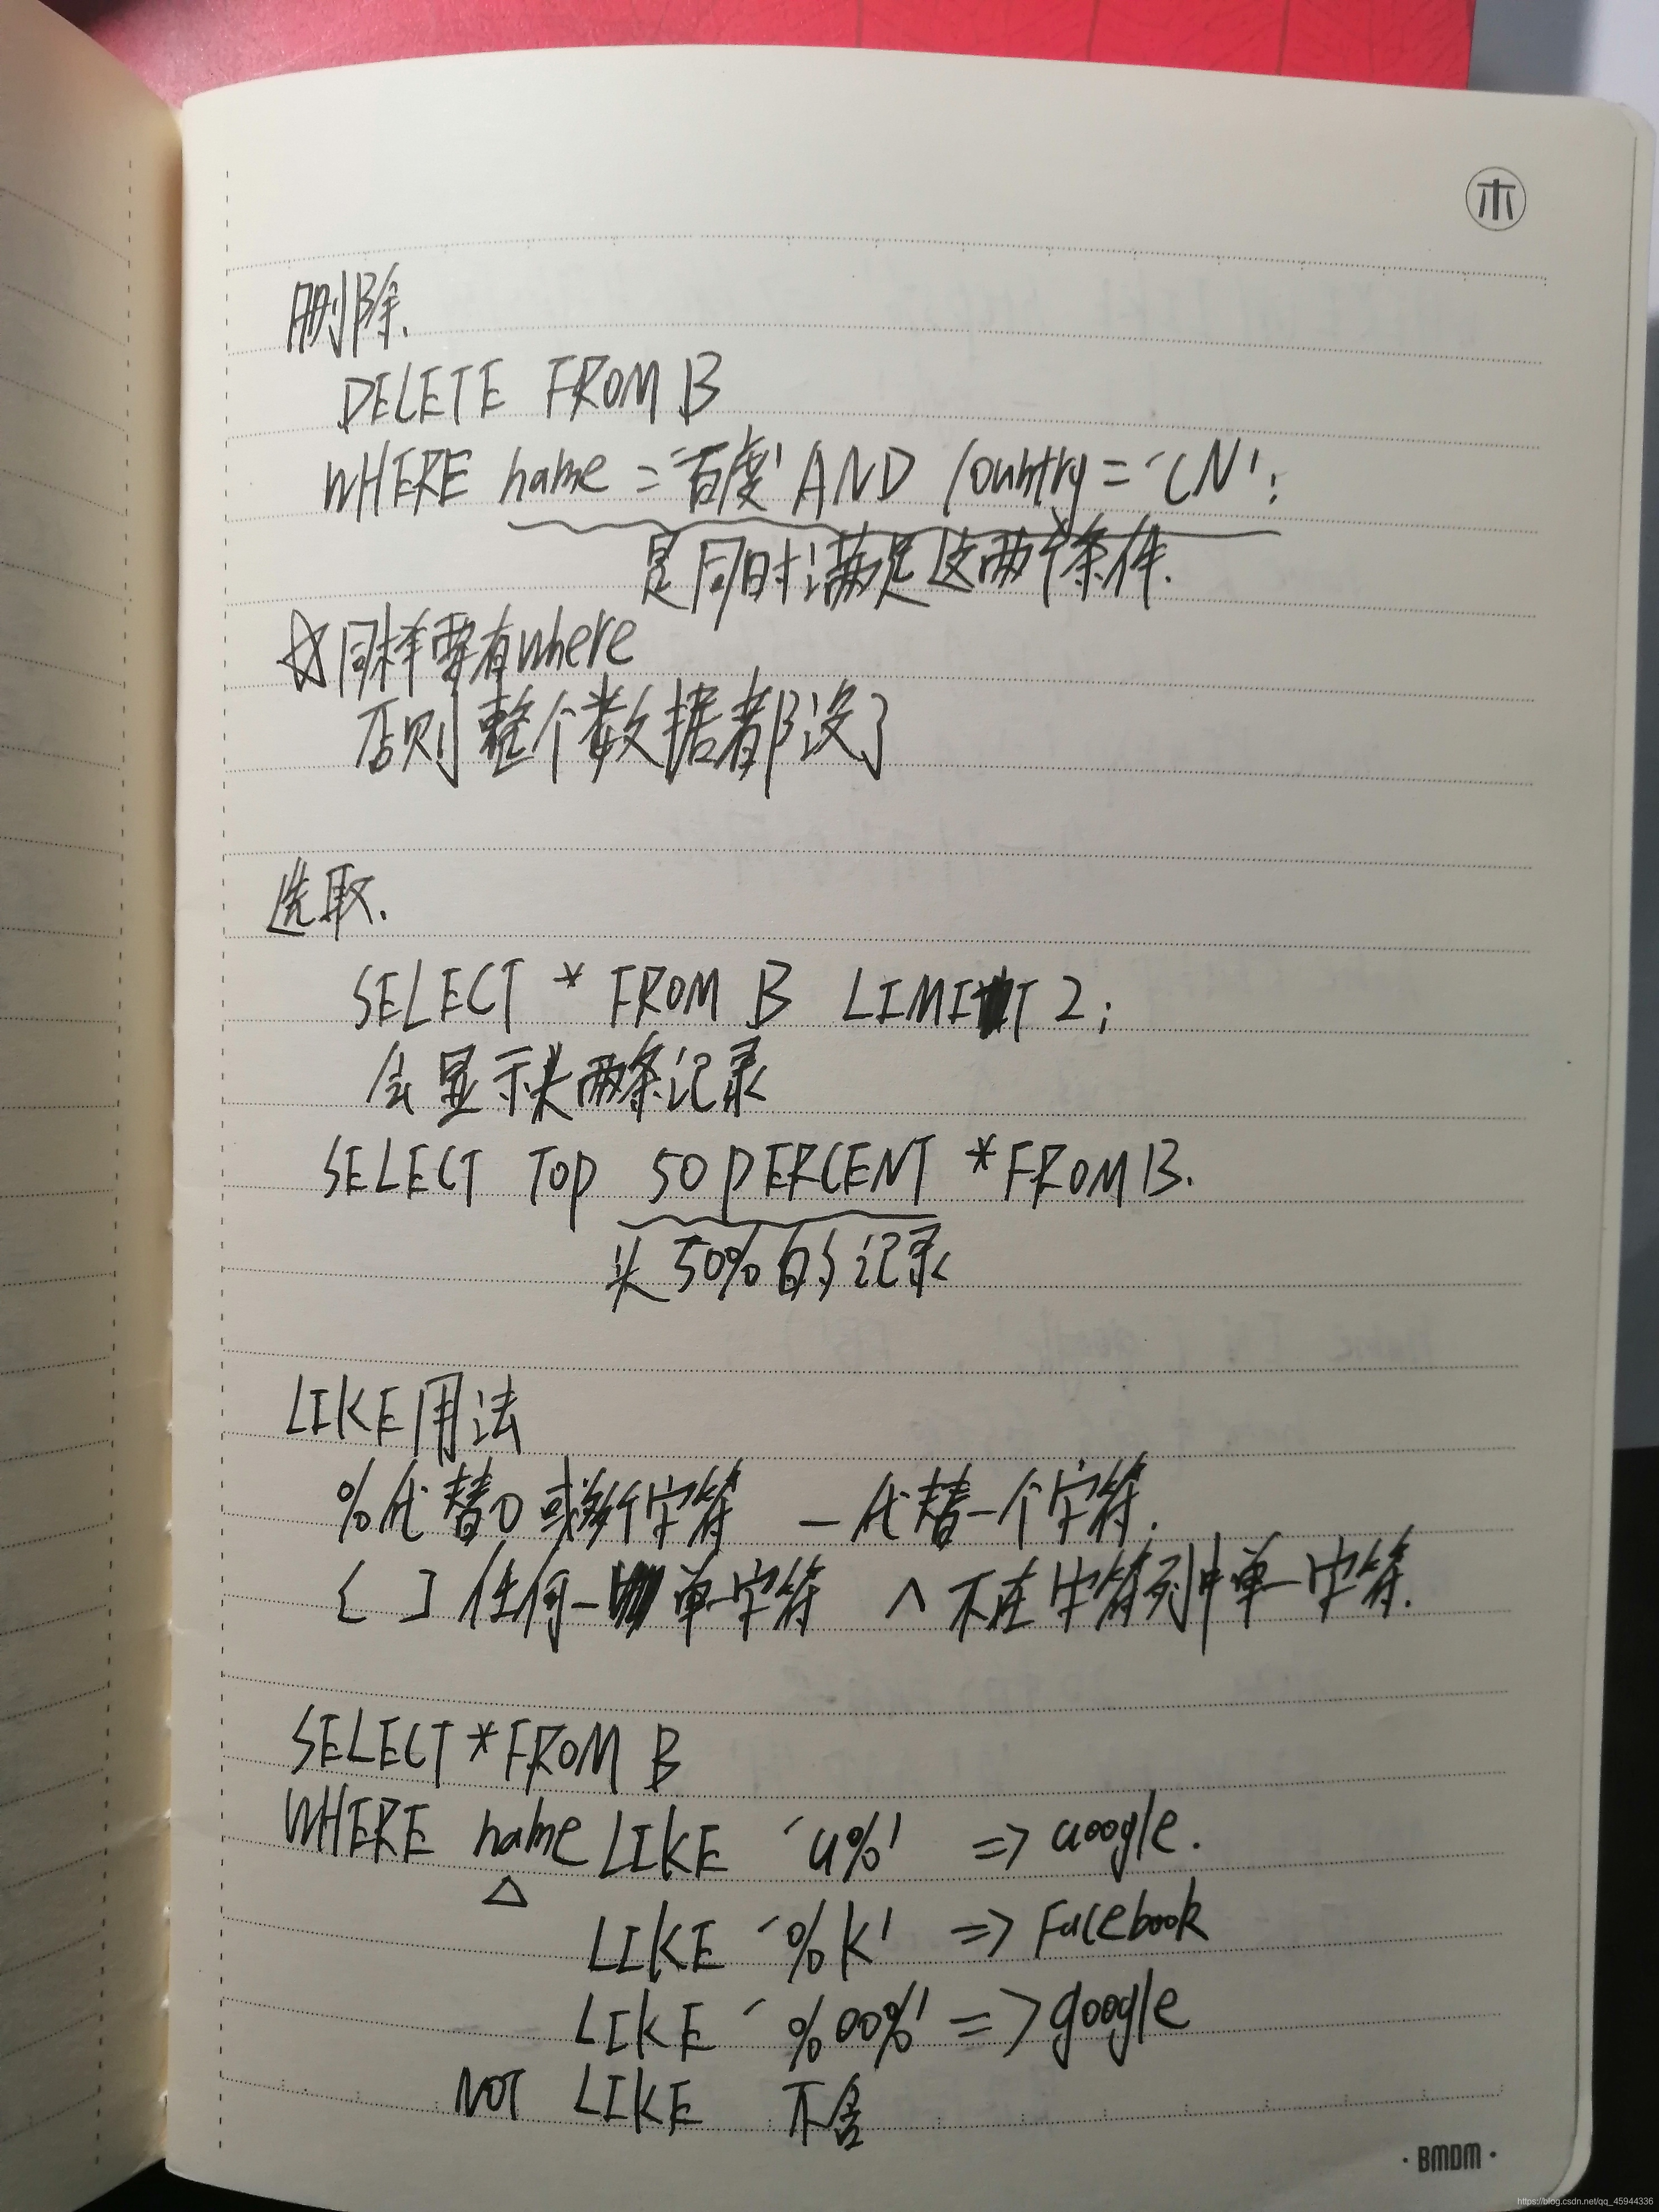 木
删除.
DELETE FROM B
WHERE name = '百度' AND country = 'CN';
是同时满足这两个条件.
☆同样要有where
否则整个数据都没了
选取.
SELECT * FROM B LIMIT 2;
会显示头两条记录
SELECT TOP 50 PERCENT * FROM B.
头50%的记录
LIKE用法
%代替0或多个字符 _代替一个字符.
[ ] 任何一单一字符 ^ 不在字符列中单一字符.
SELECT * FROM B
WHERE name LIKE 'G%' => Google.
△
LIKE '%K' => Facebook
LIKE '%oo%' => google
NOT LIKE 不含
·BMDM·
https://blog.csdn.net/qq_45944336